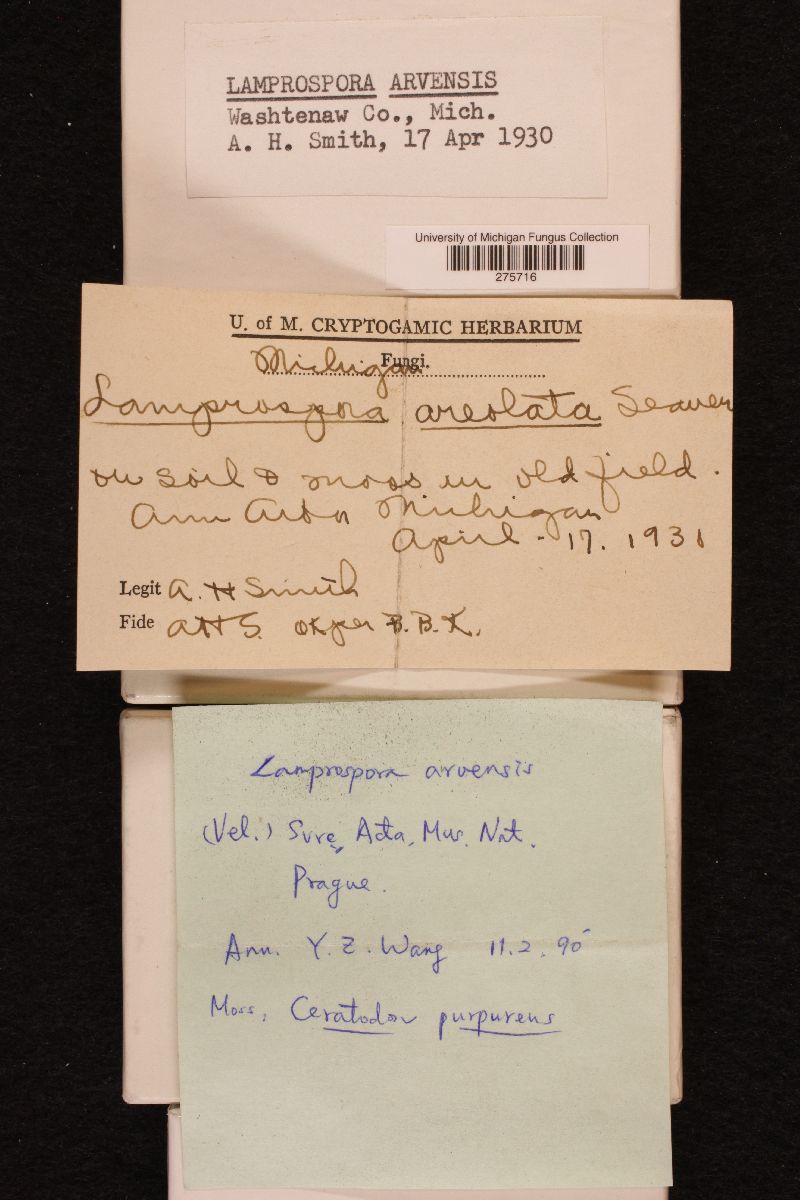 LAMPROSPORA ARVENSIS
Washtenaw Co., Mich.
A. H. Smith, 17 Apr 1930
University of Michigan Fungus Collection
275716
U. of M. CRYPTOGAMIC HERBARIUM
Fungi.
Michigan
Lamprospora areolata Seaver
on soil & moss in old field.
Ann Arbor Michigan
April - 17. 1931
Legit A. H Smith
Fide AHS. OK per B. B. K.
Lamprospora arvensis
(Vel.) Svrc, Acta, Mus. Nat.
Prague.
Ann. Y. Z. Wang 11. 2. 90
Moss, Ceratodon purpureus